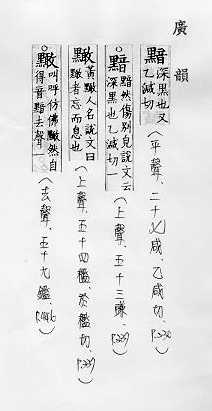 廣韻
黯
深黑也又
乙減切
(平聲、二十六咸、乙咸切、P.230)
○黯
黯然傷別皃說文云
深黑也乙減切一
(上聲、五十三豏、P.337)
黃人名說文曰
者忘而息也
(上聲、五十四檻、於檻切、P.337)
○
叫呼仿佛然自
得音黯去聲一
(去聲、五十九鑑、)